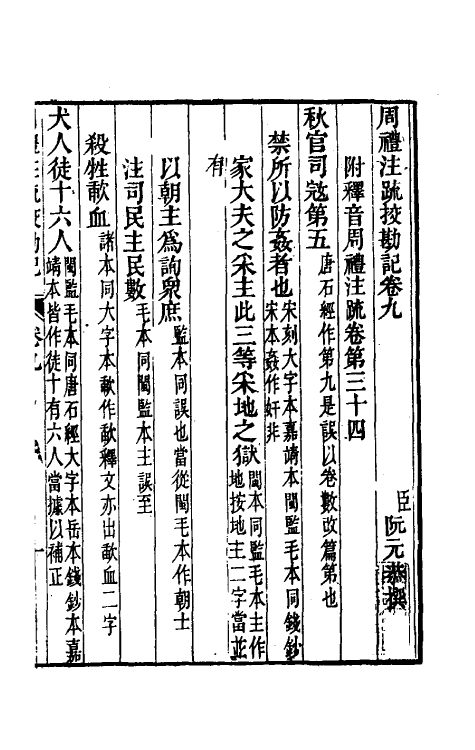 周禮注疏挍勘記卷九
臣
阮元恭撰
附釋音周禮注疏卷第三十四
秋官司寇第五
唐石經作第九是誤以卷數改篇第也
禁所以防姦者也
宋刻大字本嘉靖本閩監毛本同錢鈔
宋本姦作奸非
家大夫之采主此三等采地之獄
閩本同監毛本主作
地按地主二字當並
有
以朝主爲詢衆庶
監本同誤也當從閩毛本作朝士
注司民主民數
毛本同閩監本主誤至
殺牲歃血
諸本同大字本歃作㰱釋文亦出㰱血二字
犬人徒十六人
閩監毛本同唐石經大字本岳本錢鈔本嘉
靖本皆作徒十有六人當據以補正